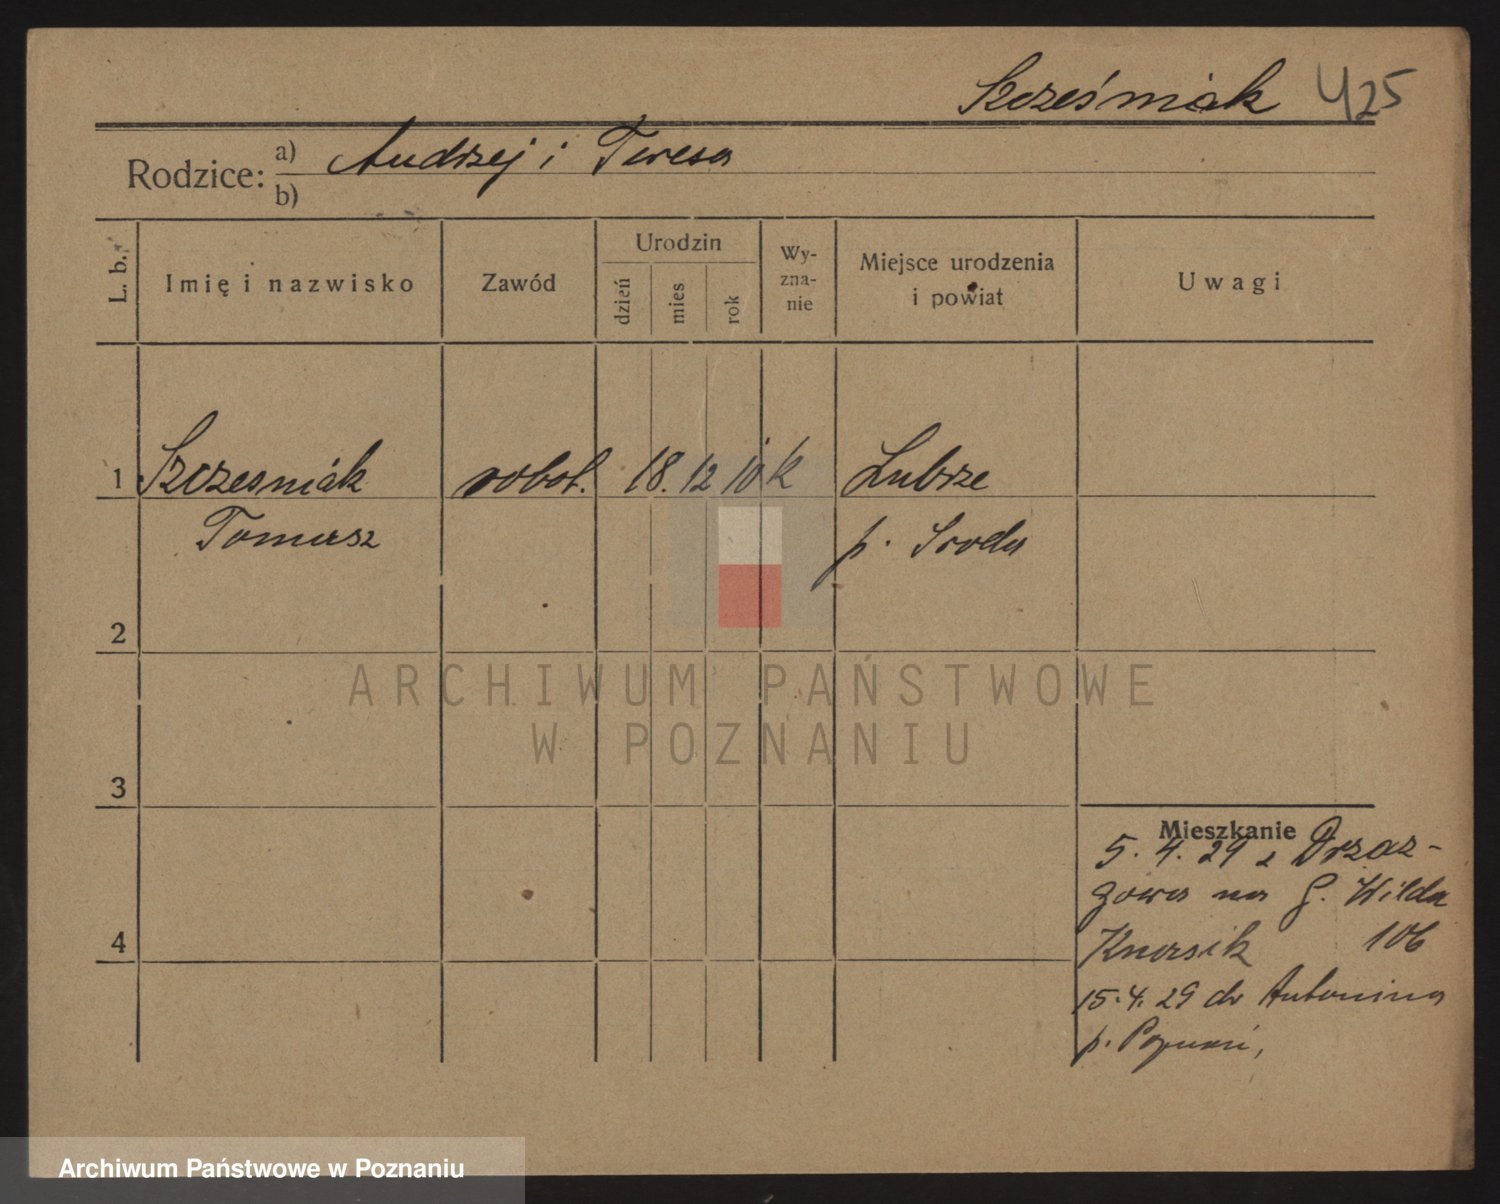 Szcześniak 425
Rodzice: a) Andrzej i Teresa
b)
L. b. Imię i nazwisko Zawód Urodzin dzień mies rok Wy-zna-nie Miejsce urodzenia i powiat Uwagi
1 Szczesniak robot. 18. 12 10 k Lubrze
Tomasz p. Sroda
2
ARCHIWUM PAŃSTWOWE
W POZNANIU
3
Mieszkanie
5. 4. 29 z Drzaz-
gowa na G. Wilda
4
106
15. 4. 29 do Antonina
p. Poznań,
Archiwum Państwowe w Poznaniu